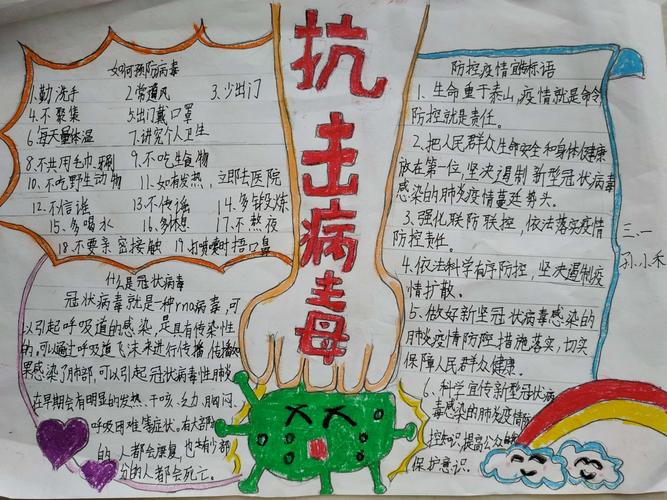 抗击病毒
如何预防病毒
1.勤洗手 2常通风 3.少出门
4.不聚集 5.出门戴口罩
6.每天量体温 7.讲究个人卫生
8.不共用毛巾、牙刷 9.不吃生食物
10.不吃野生动物 11.如有发热，立即去医院
12.不信谣 13.不传谣 14.多锻炼
15.多喝水 16.多休息 17.不熬夜
18.不要亲密接触 19.打喷嚏时捂口鼻
什么是冠状病毒
冠状病毒就是一种rna病毒,可
以引起呼吸道的感染,是具有传染性
的,可以通过呼吸道飞沫来进行传播,传播效
果感染了肺部,可以引起冠状病毒性肺炎
在早期会有明显的发热、干咳、乏力、胸闷、
呼吸困难等症状。有大部分
的人都会康复,也有少部
分的人都会死亡。
防控疫情宣标语
1、生命重于泰山,疫情就是命令
防控就是责任。
2、把人民群众生命安全和身体健康
放在第一位,坚决遏制新型冠状病毒
感染的肺炎疫情蔓延势头。
3.强化联防联控，依法落实疫情
防控责任。
4.依法科学有序防控，坚决遏制疫
情扩散。
5、做好新型冠状病毒感染的
肺炎疫情防控措施落实,切实
保障人民群众健康。
6、科学宣传新型冠状病
毒感染的肺炎疫情防
控知识提高公众的
保护意识。
三、一
孙小禾